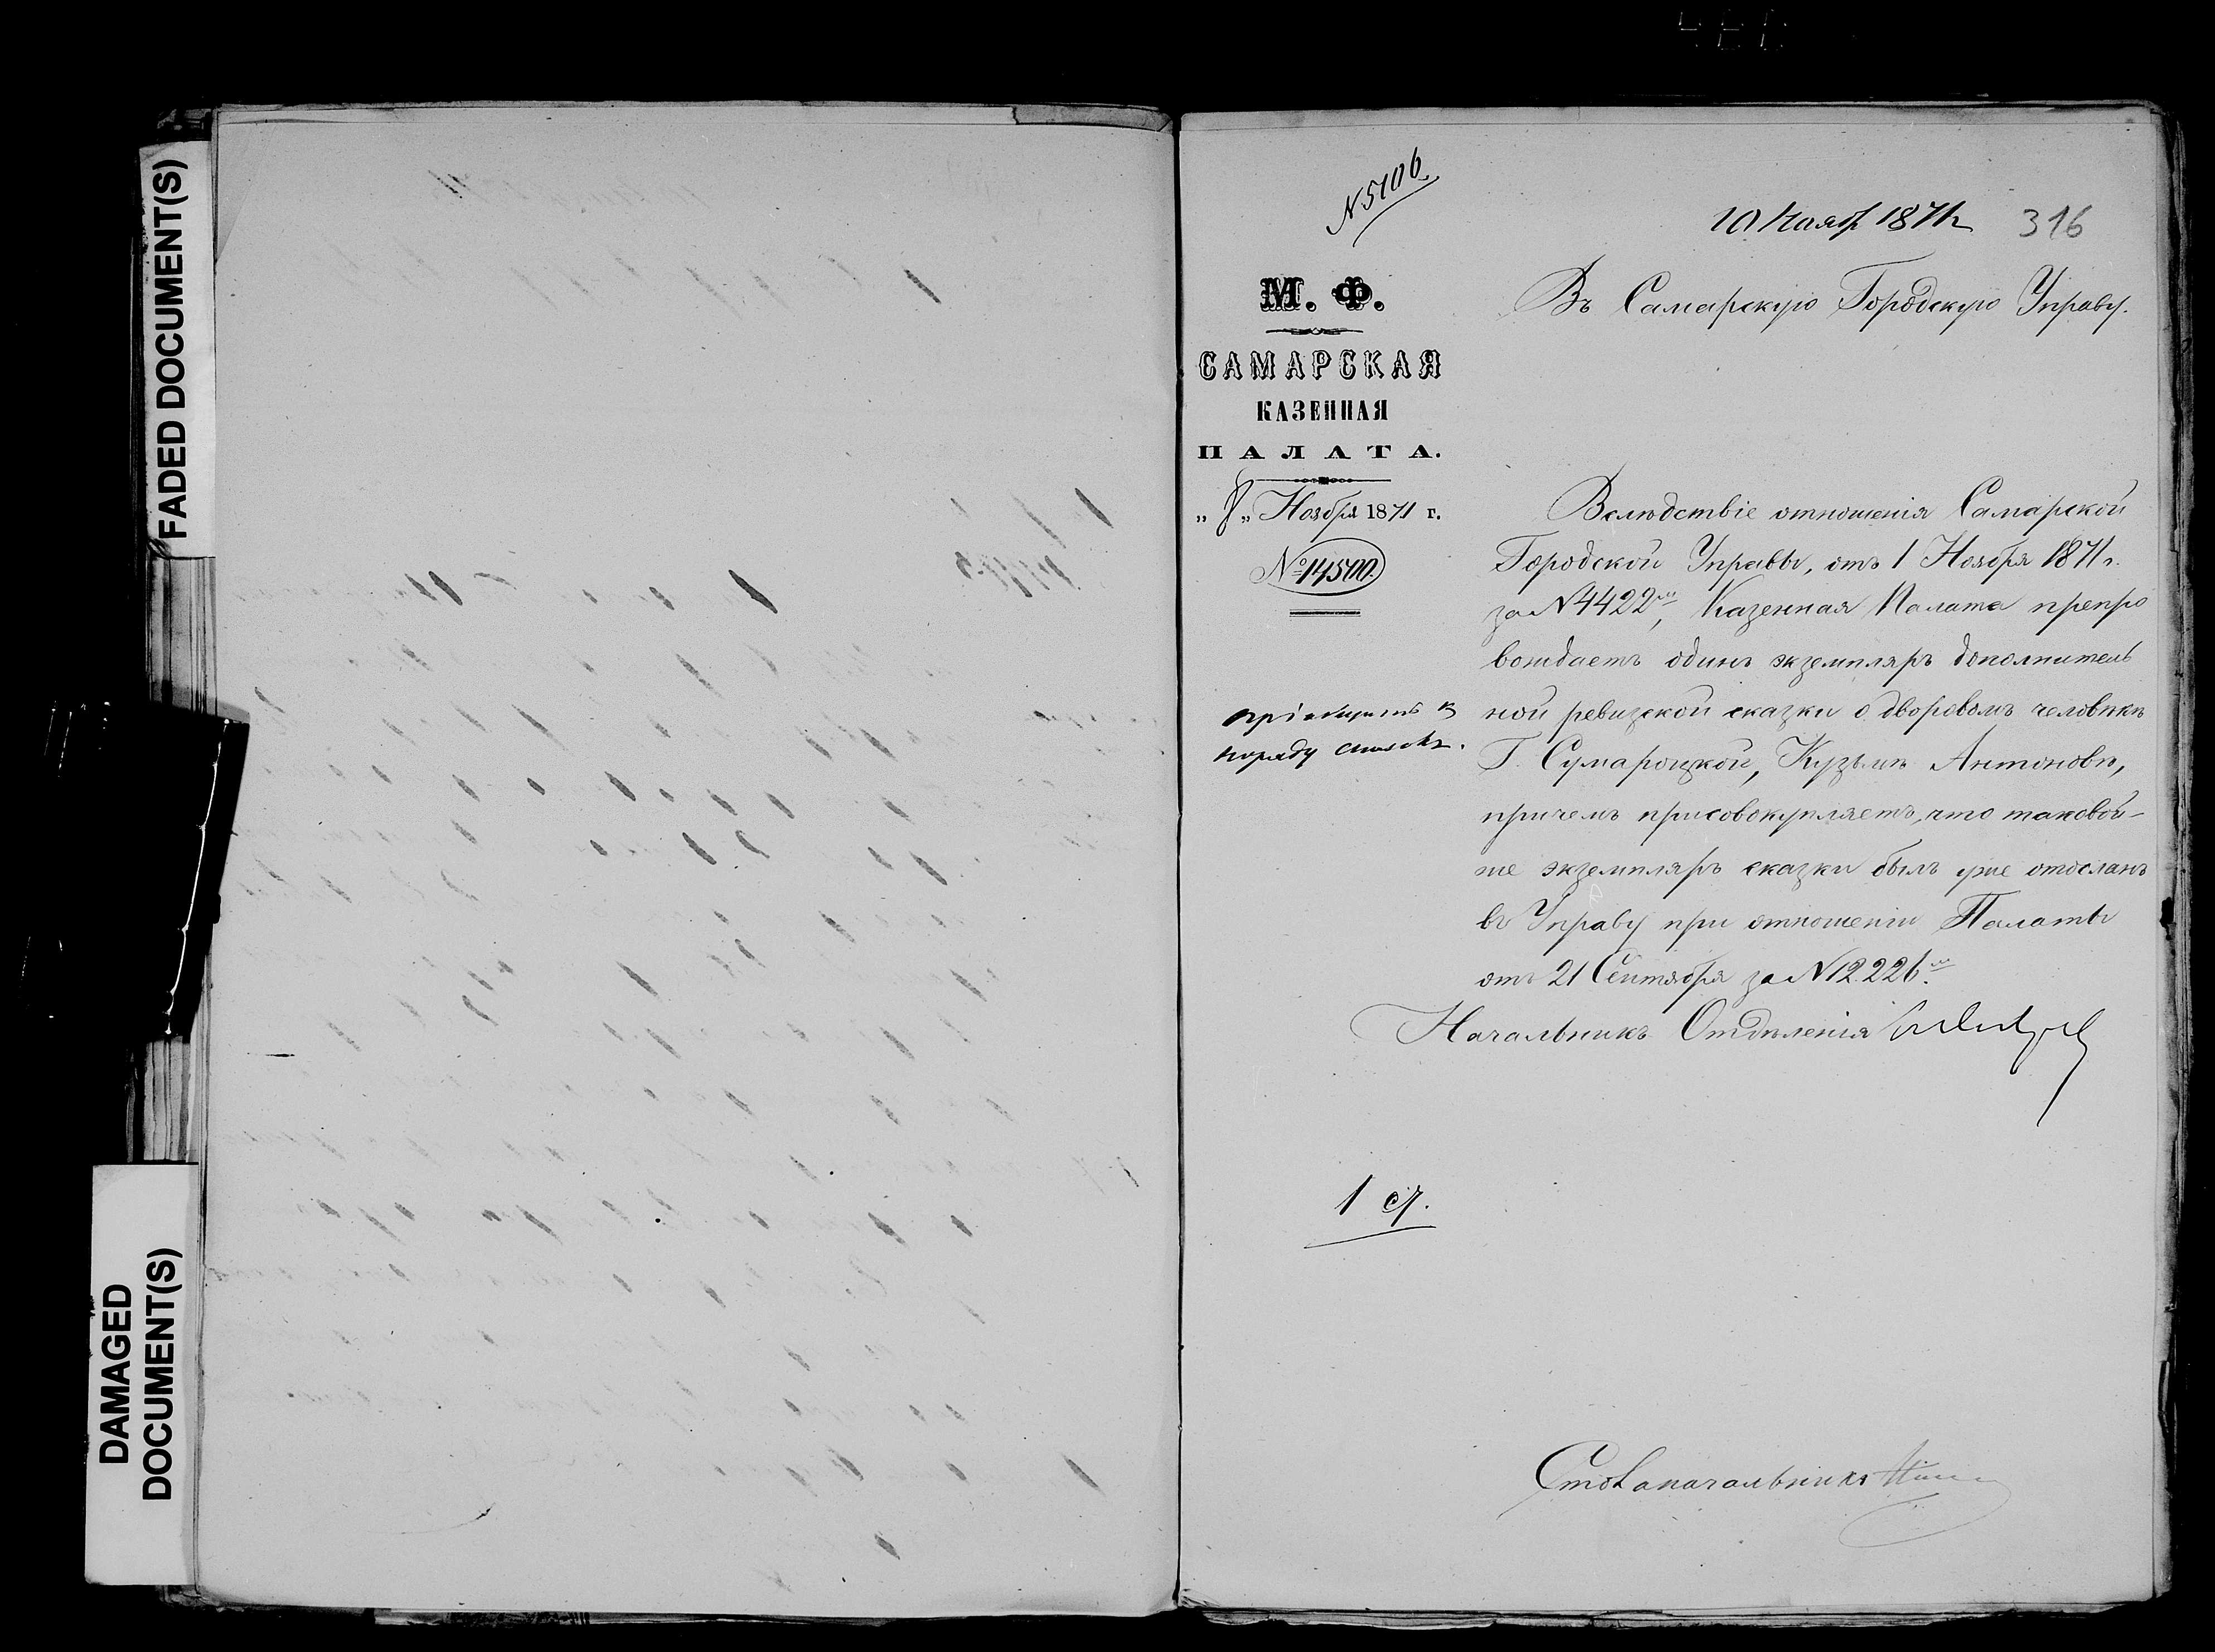 FADED DOCUMENT(S)
DAMAGED
DOCUMENT(S)
N 5106.
10 Нояб 1871 г
316
М. Ф.
САМАРСКАЯ
КАЗЕННАЯ
ПАЛАТА.
„ 8 „ Ноября 1871 г.
№ 14500.
Въ Самарскую Городскую Управу.
Вслѣдствіе отношенія Самарской
Городской Управы, отъ 1 Ноября 1871 г.
за N 4422ᵐ, Казенная Палата препро
вождаетъ одинъ экземпляръ дополнитель
ной ревизской сказки о дворовомъ человѣкѣ
Г. Сумароцкой, Кузьмѣ Антоновѣ,
причемъ присовокупляетъ, что таковой-
же экземпляръ сказки былъ уже отосланъ
въ Управу при отношеніи Палаты
отъ 21 Сентября за N 12226ᵐ.
Начальникъ Отдѣленія
къ
1 ст.
Столоначальникъ